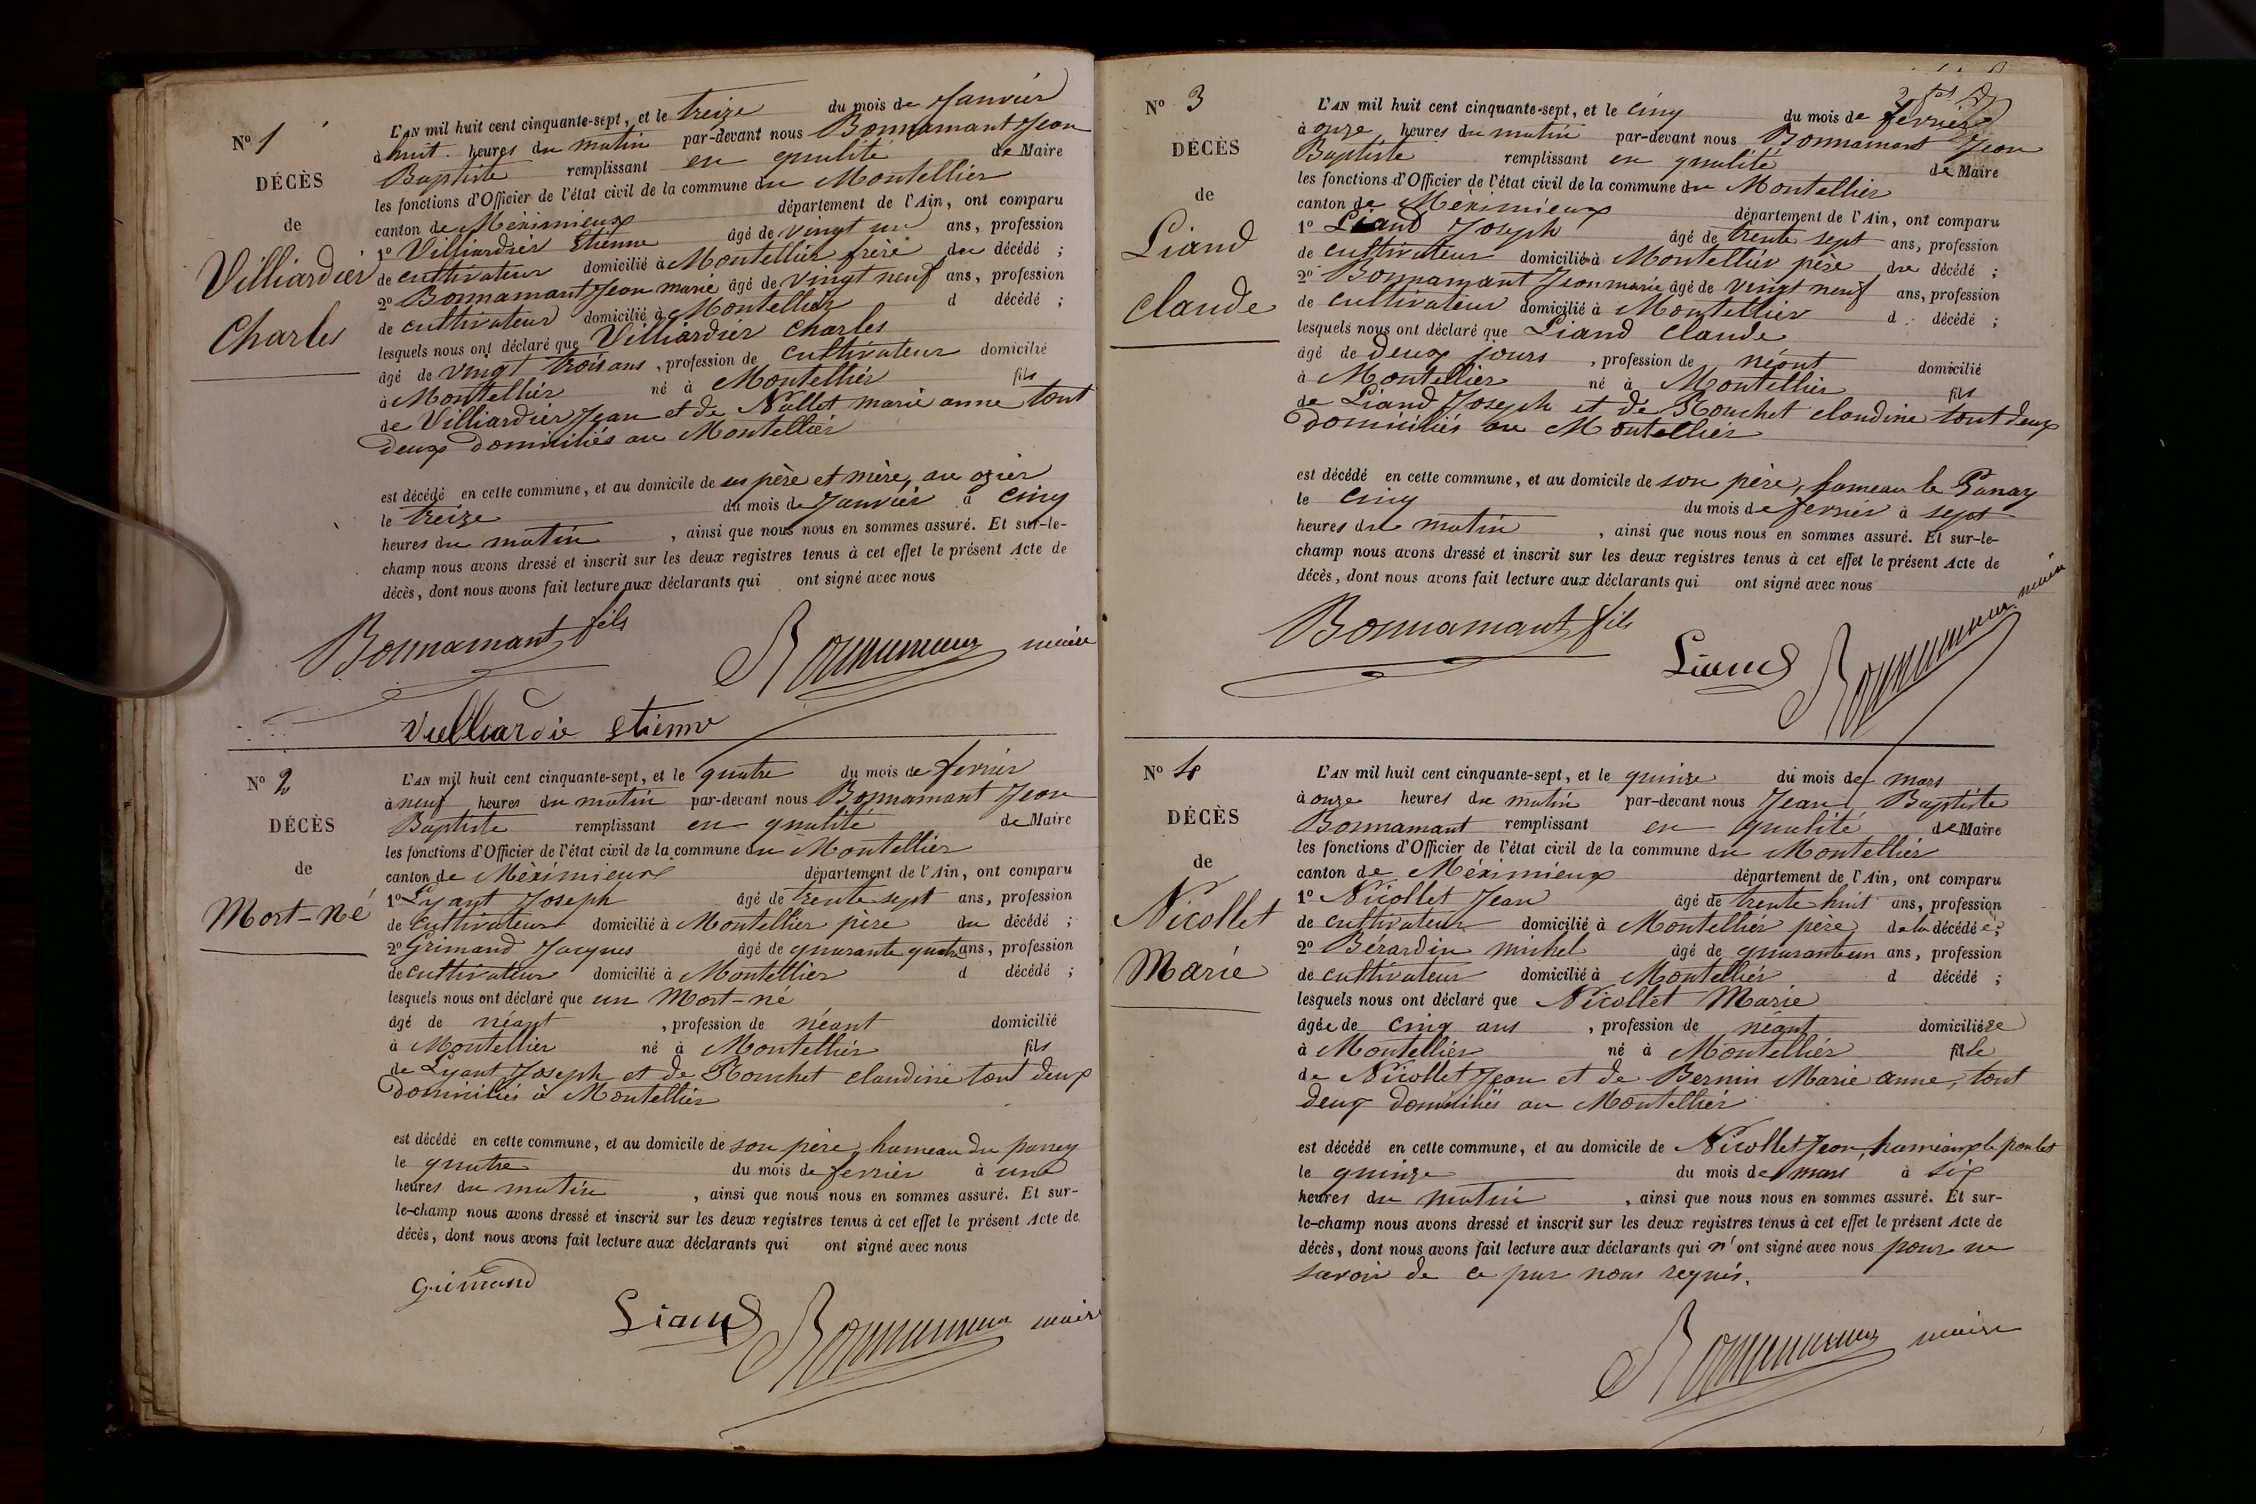 Nº 1
DÉCÈS
de
Villiardier
Charles
L'AN mil huit cent cinquante-sept, et le treize du mois de Janvier
à huit heures du matin par-devant nous Bonnamant Jean
Baptiste remplissant en qualité de Maire
les fonctions d'Officier de l'état civil de la commune du Montellier
canton de Méximieux département de l'Ain, ont comparu
1º Villiardier Etienne âgé de vingt un ans, profession
de cultivateur domicilié à Montellier frère du décédé ;
2º Bonnamant Jean marie âgé de vingt neuf ans, profession
de cultivateur domicilié à Montellier d décédé ;
lesquels nous ont déclaré que Villiardier Charles
âgé de vingt trois ans, profession de cultivateur domicilié
à Montellier né à Montellier fils
de Villiardier Jean et de Nallet marie anne tout
deux domiciliés au Montellier
est décédé en cette commune, et au domicile de ses père et mère, au ozier
le treize du mois de Janvier à cinq
heures du matin, ainsi que nous nous en sommes assuré. Et sur-le-
champ nous avons dressé et inscrit sur les deux registres tenus à cet effet le présent Acte de
décès, dont nous avons fait lecture aux déclarants qui ont signé avec nous
Bonnamant fils
Bonnamant maire
Vuilliardie Etienne
Nº 2
DÉCÈS
de
Mort-né
L'AN mil huit cent cinquante-sept, et le quatre du mois de fevrier
à neuf heures du matin par-devant nous Bonnamant Jean
Baptiste remplissant en qualité de Maire
les fonctions d'Officier de l'état civil de la commune du Montellier
canton de Méximieux département de l'Ain, ont comparu
1º Lyant Joseph âgé de trente sept ans, profession
de cultivateur domicilié à Montellier père du décédé ;
2º Grimand Jacques âgé de quarante quatre ans, profession
de cultivateur domicilié à Montellier d décédé ;
lesquels nous ont déclaré que un Mort-né
âgé de néant, profession de néant domicilié
à Montellier né à Montellier fils
de Lyant Joseph et de Rouchet claudine tout deux
domiciliés à Montellier
est décédé en cette commune, et au domicile de son père, hameau du
le quatre du mois de fevrier à une
heures du matin, ainsi que nous nous en sommes assuré. Et sur-
le-champ nous avons dressé et inscrit sur les deux registres tenus à cet effet le présent Acte de
décès, dont nous avons fait lecture aux déclarants qui ont signé avec nous
Grimand
Liand Bonnamant maire
Nº 3
DÉCÈS
de
Liand
Claude
L'AN mil huit cent cinquante-sept, et le cinq du mois de fevrier
à onze heures du matin par-devant nous Bonnamant Jean
Baptiste remplissant en qualité de Maire
les fonctions d'Officier de l'état civil de la commune du Montellier
canton de Méximieux département de l'Ain, ont comparu
1º Liand Joseph âgé de trente sept ans, profession
de cultivateur domicilié à Montellier père du décédé ;
2º Bonnamant Jean marie âgé de vingt neuf ans, profession
de cultivateur domicilié à Montellier d décédé ;
lesquels nous ont déclaré que Liand Claude
âgé de deux jours, profession de néant domicilié
à Montellier né à Montellier fils
de Liand Joseph et de Rouchet claudine tout deux
domiciliés au Montellier
est décédé en cette commune, et au domicile de son père, hameau le
le cinq du mois de fevrier à sept
heures du matin, ainsi que nous nous en sommes assuré. Et sur-le-
champ nous avons dressé et inscrit sur les deux registres tenus à cet effet le présent Acte de
décès, dont nous avons fait lecture aux déclarants qui ont signé avec nous
Bonnamant fils
Liand Bonnamant maire
Nº 4
DÉCÈS
de
Nicollet
Marie
L'AN mil huit cent cinquante-sept, et le quinze du mois de mars
à onze heures du matin par-devant nous Jean Baptiste
Bonnamant remplissant en qualité de Maire
les fonctions d'Officier de l'état civil de la commune du Montellier
canton de Méximieux département de l'Ain, ont comparu
1º Nicollet Jean âgé de trente huit ans, profession
de cultivateur domicilié à Montellier père de la décédée ;
2º Bérardin michel âgé de quarante un ans, profession
de cultivateur domicilié à Montellier d décédé ;
lesquels nous ont déclaré que Nicollet Marie
âgée de cinq ans, profession de néant domiciliée
à Montellier né à Montellier fille
de Nicollet Jean et de Bernin Marie anne, tout
deux domiciliés au Montellier
est décédé en cette commune, et au domicile de Nicollet Jean, hameaux le
le quinze du mois de mars à six
heures du matin, ainsi que nous nous en sommes assuré. Et sur-
le-champ nous avons dressé et inscrit sur les deux registres tenus à cet effet le présent Acte de
décès, dont nous avons fait lecture aux déclarants qui n'ont signé avec nous pour ne
savoir de ce par nous requis.
Bonnamant maire